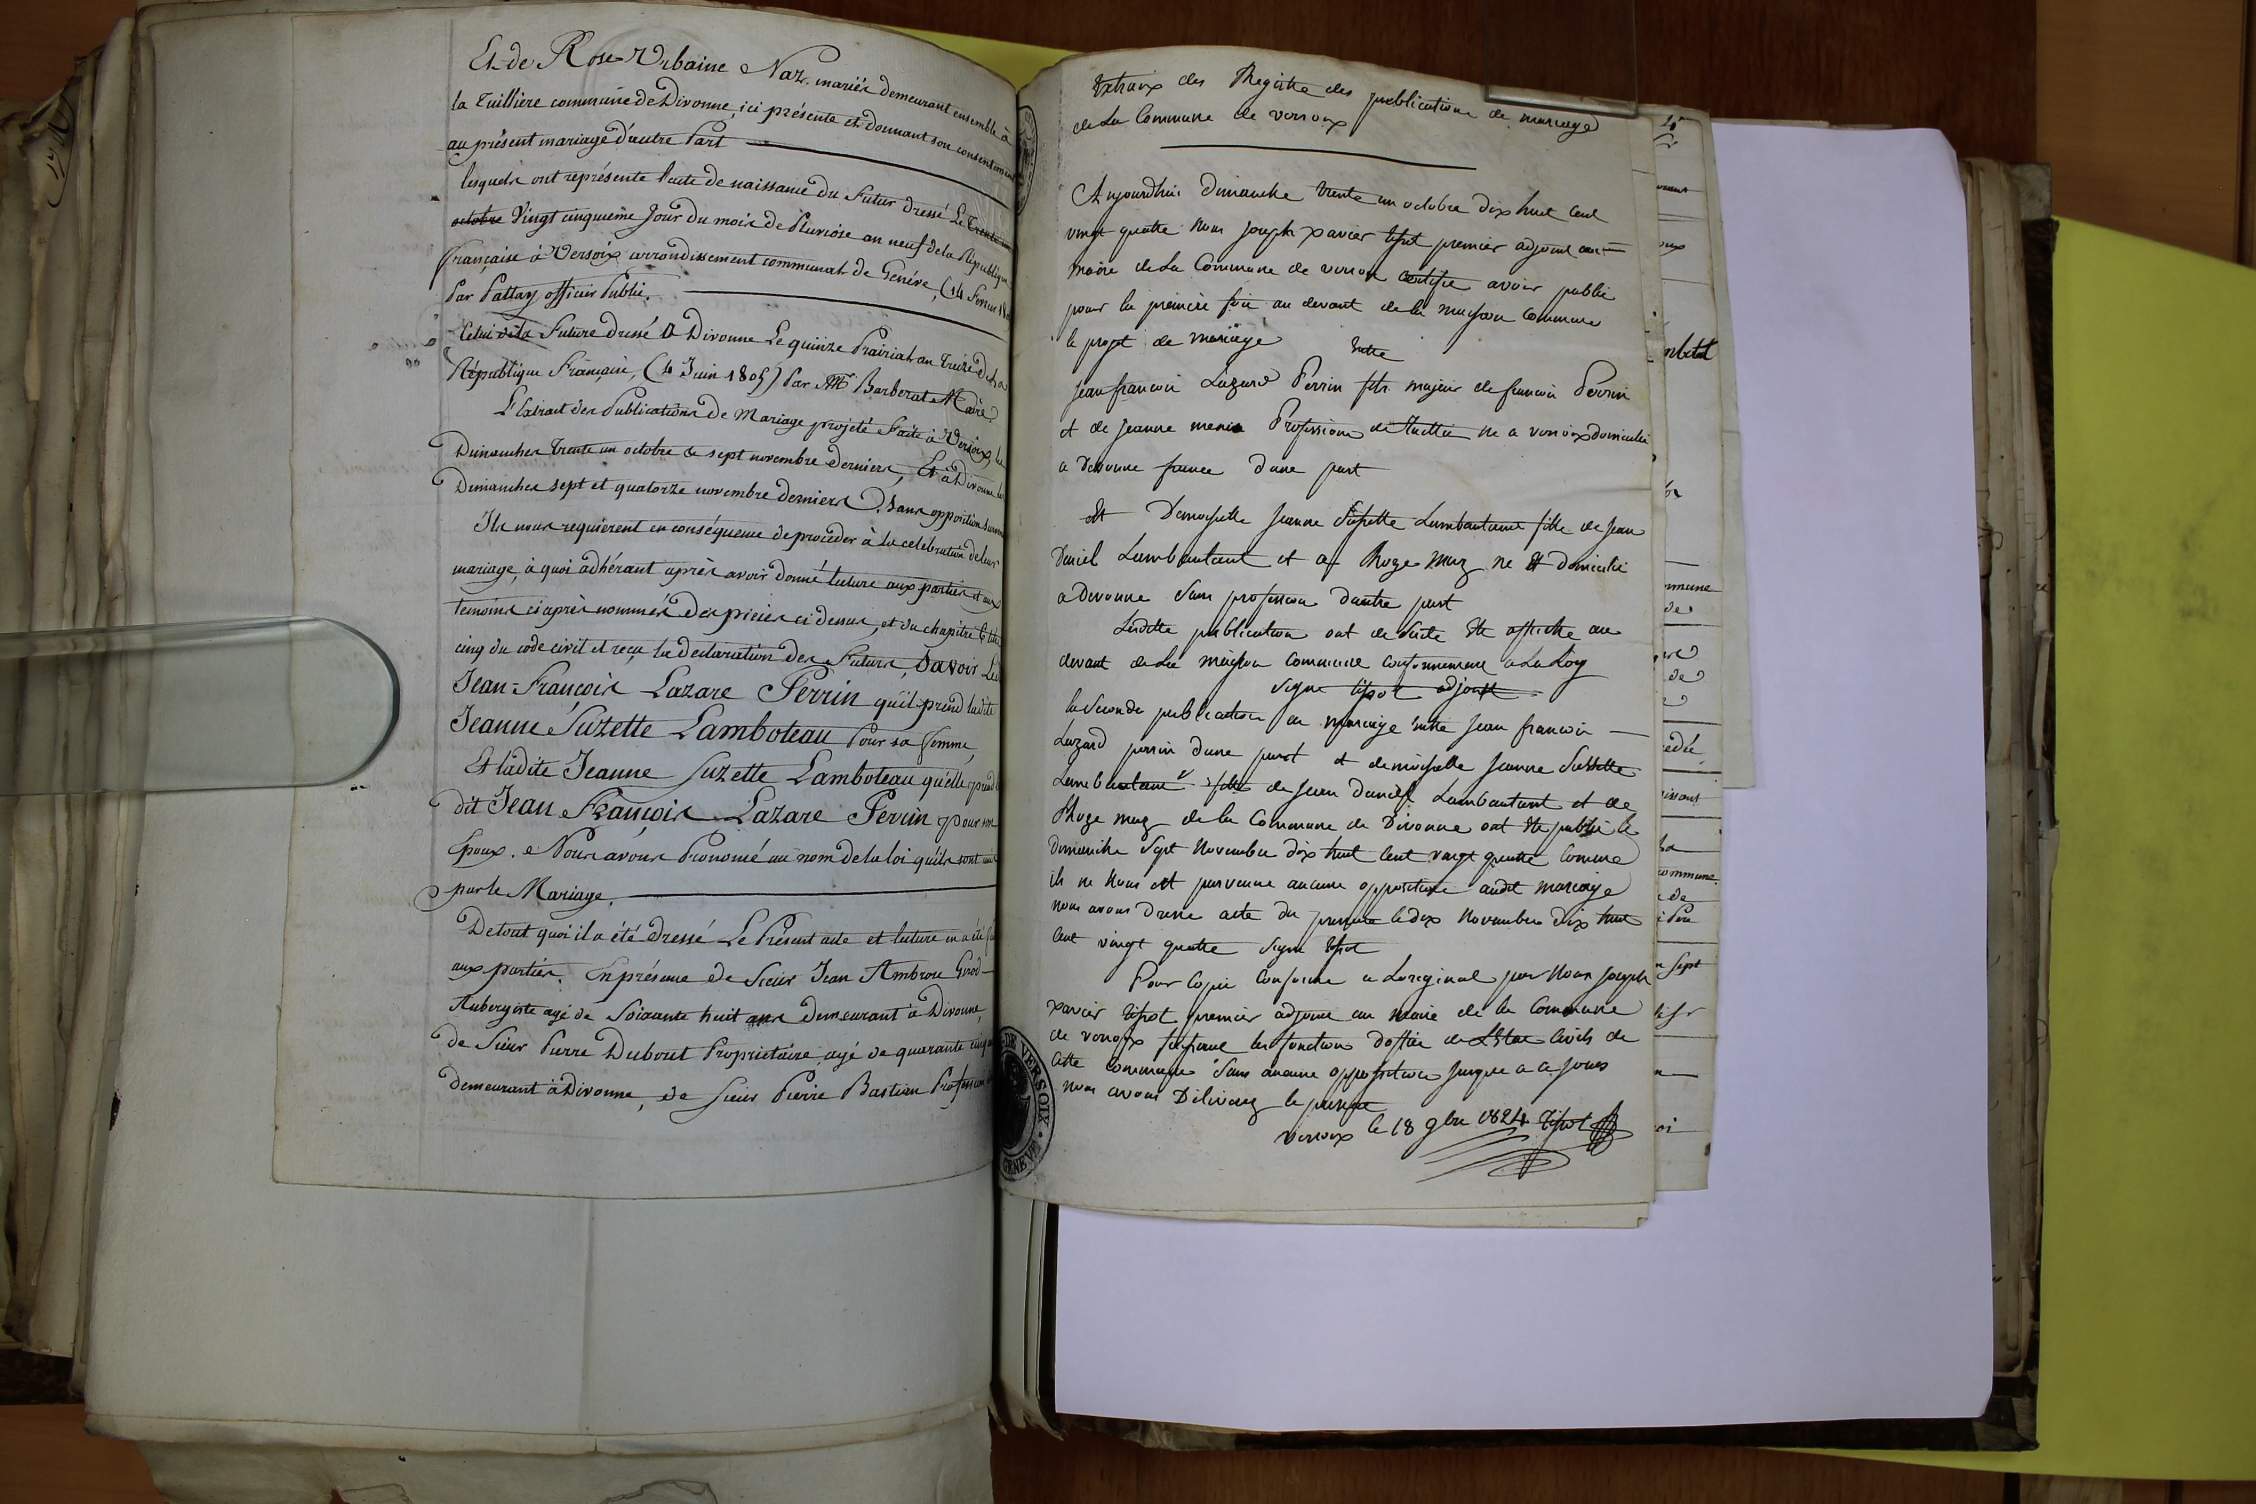 Et de Rose Urbaine Naz. mariés demeurant ensemble à
la Tuillière commune de Divonne, ici présente et donnant son consentement
au présent mariage d'autre Part
lesquels ont représenté l'acte de naissance du Futur dressé Le Trente un
octobre Vingt cinquieme Jour du mois de Pluviôse an neuf de la République
française à Versoix arrondissement communal de Genève, (14 Fevrier 180
Par Pattay officier Public.
Celui de la Future dressé à Divonne Le quinze Prairial an Treize de la
République Française, (4 Juin 1805) Par Mr Barberat Maire
L'Extrait des Publications de Mariage projeté Faite à Versoix, les
Dimanches Trente un octobre & sept novembre derniers, Et à Divonne les
Dimanches sept et quatorze novembre derniers. Sans opposition
Ils nous requièrent en conséquence de procéder à la celebration de leur
mariage, à quoi adhérant après avoir donné lecture aux parties et aux
temoins ci après nommés des pièces ci dessus, et du chapitre 6 titre
cinq du code civil et reçu la declaration des Futurs, Savoir Le
Jean-François Lazare Perrin qu'il prend ladite
Jeanne Suzette Lamboteau Pour sa femme,
Et ladite Jeanne Suzette Lamboteau qu'elle prend le
dit Jean François Lazare Perrin pour son
Epoux. Nous avons Prononcé au nom de la loi qu'ils sont unis
par le Mariage.
De tout quoi il a été dressé Le Présent acte et lecture en a été
aux parties. En présence de Sieur Jean Ambroise Girod
Aubergiste agé de Soixante huit ans demeurant à Divonne,
de Sieur Pierre Dubout Propriétaire agé de quarante cinq
demeurant à Divonne, de Sieur Pierre Bastian Profession
Extraix des Registre des publication de mariage
de La Commune de versoix
Aujourdhui Dimanche trente un octobre dix huit Cent
vingt quatre Nous joseph xavier premier adjoint au
maire de La Commune de versoix certifie avoir publié
pour la première fois au devant de la maison Commune
le projet de mariage Entre
jean francois Lazard Perrin fils majeur de francois Perrin
et de jeanne Profession de ne a versoix domicilié
a Divonne france dune part
et Demoiselle jeanne Susette Lambautant fille de jean
Daniel Lambautant et a Roze Muz ne et domicilié
a Divonne Sans profession dautre part
Ladite publication ont de Suite Ete affiche au
devant de La maison commune conformement a La Loy
Signe adjoint
la Seconde publication du mariage entre jean francois
Lazard perrin dune part et demoiselle jeanne Susette
Lambautant fille de jean Daniel Lambautant et de
Roze muz de la Commune de Divonne ont Ete publié le
Dimanche Sept Novembre dix huit Cent vingt quatre Comme
ils ne Nous est parvenue aucune opposition audit mariage
nous avons Dressé acte du present le dix Novembre dix huit
Cent vingt quatre Signe
Pour Copie Conforme a Loriginal par Nous joseph
xavier premier adjoint au maire de la Commune
de versoix les fonction doffice de LEtat Civils de
Cette Commune Sans aucune opposition jusque a ce jours
nous avons Delivrez le present
versoix le 18 9bre 1824
DE VERSOIX
GENEVE